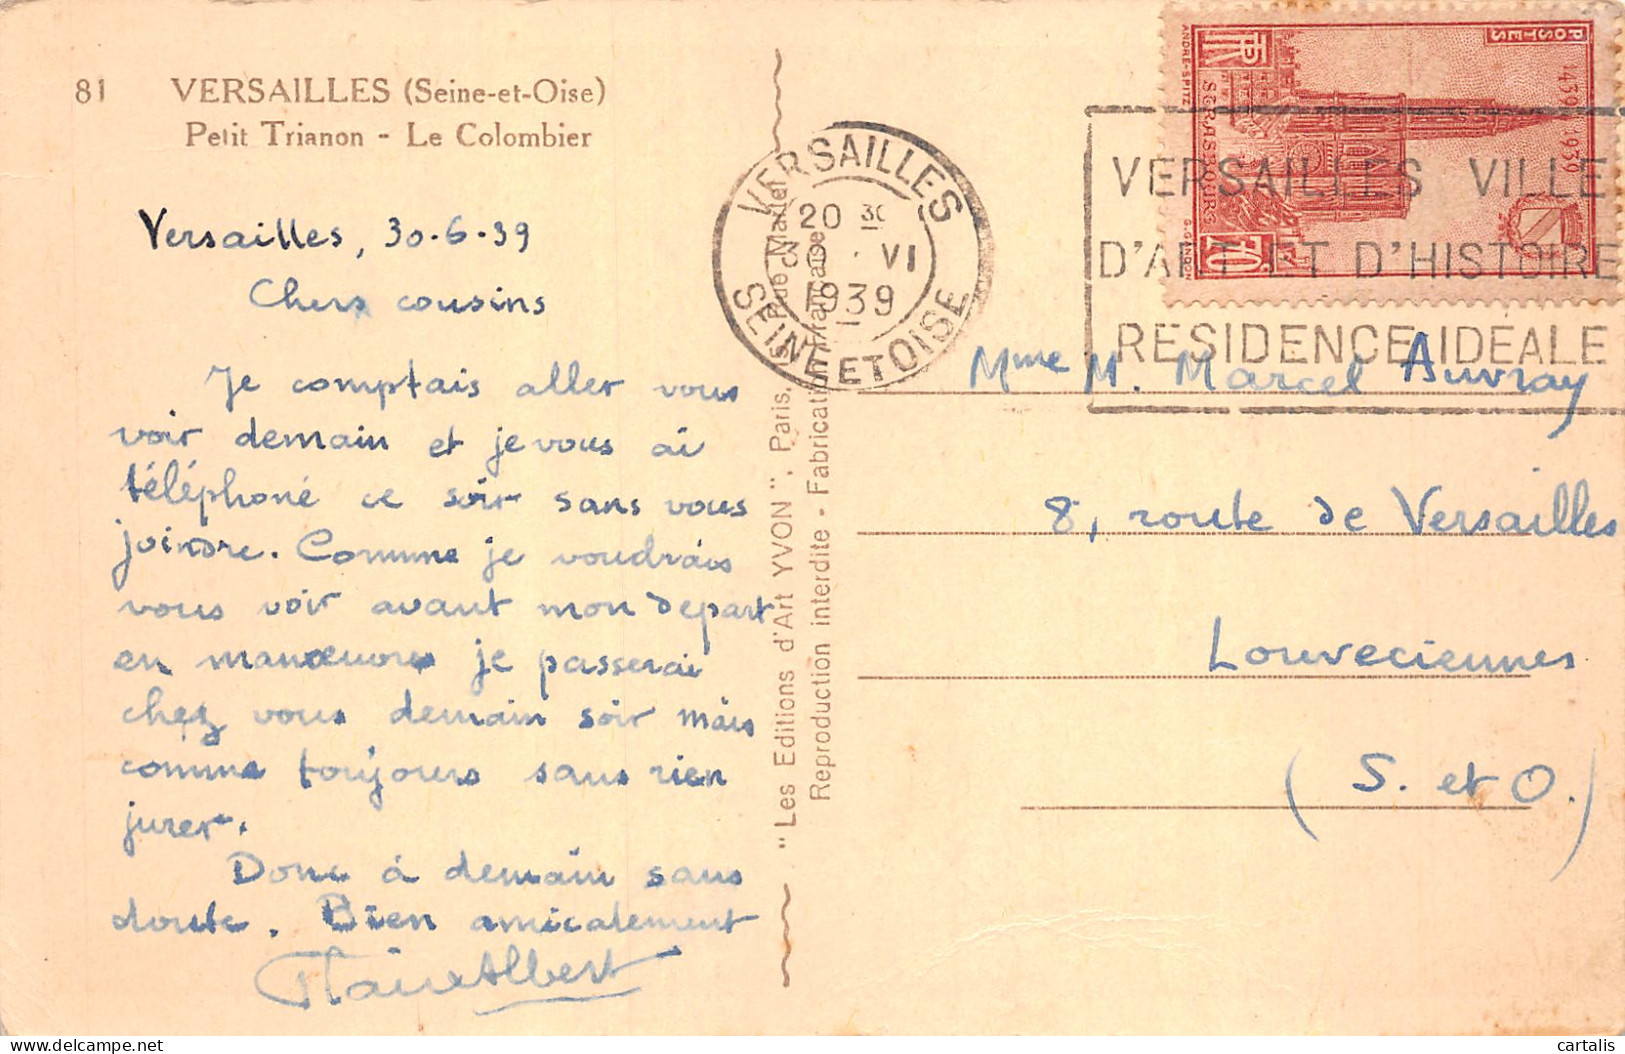 81 VERSAILLES (Seine-et-Oise)
Petit Trianon - Le Colombier
Versailles, 30-6-39
Chers cousins
Je comptais aller vous
voir demain et je vous ai
téléphoné ce soir sans vous
joindre. Comme je voudrais
vous voir avant mon depart
en manœuvres je passerai
chez vous demain soir mais
comme toujours sans rien
jurer.
Donc à demain sans
doute. Bien amicalement
Albert
"Les Editions d'Art YVON". Paris,
Reproduction interdite - Fabrication Française
VERSAILLES
20 30
30 VI
1939
SEINE ET OISE
VERSAILLES VILLE
D'ART ET D'HISTOIRE
RESIDENCE IDEALE
POSTES
1439 1939
RF
STRASBOURG
70
ANDRÉ-SPITZ
G.GANDON
Mme M. Marcel Auvray
8, route de Versailles
Louveciennes
(S. et O.)
cartalis